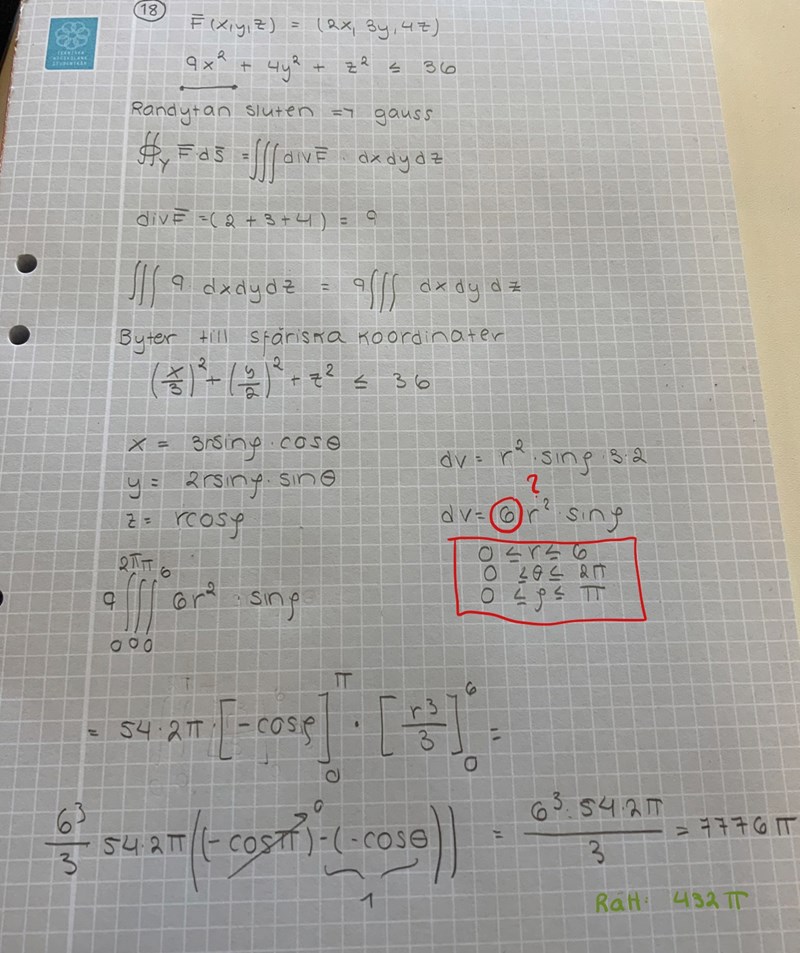 18
F̅(x,y,z) = (2x, 3y, 4z)
9x² + 4y² + z² ≤ 36
Randytan sluten => gauss
∯_Y F̅·dS̅ = ∭ div F̅ · dxdydz
div F̅ = (2+3+4) = 9
∭ 9 dxdydz = 9∭ dxdydz
Byter till sfäriska koordinater
(x/3)² + (y/2)² + z² ≤ 36
x = 3rsinρ · cosθ
y = 2rsinρ · sinθ
z = rcosρ
dv = r² · sinρ · 3·2
?
dv = 6r² · sinρ
0 ≤ r ≤ 6
0 ≤ θ ≤ 2π
0 ≤ ρ ≤ π
9 ∫₀^2π ∫₀^π ∫₀^6 6r² · sinρ
= 54·2π · [-cosρ]₀^π · [r³/3]₀^6 =
6³/3 54·2π((-cosπ)-(-cosθ)) = 6³·54·2π/3 = 7776π
0
1
Rätt: 432π